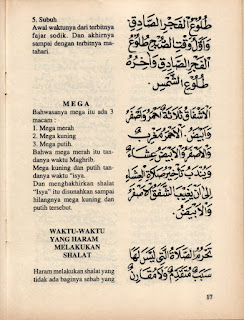 5. Subuh
Awal waktunya dari terbitnya
fajar sodik. Dan akhirnya
sampai dengan terbitnya ma-
tahari.
طُلُوعُ الْفَجْرِ الصَّادِقِ
وَأَوَّلُ وَقْتِ الصُّبْحِ طُلُوعُ
الْفَجْرِ الصَّادِقِ وَآخِرُهُ
طُلُوعُ الشَّمْسِ
MEGA
Bahwasanya mega itu ada 3
macam :
1. Mega merah
2. Mega kuning
3. Mega putih.
Bahwa mega merah itu tan-
danya waktu Maghrib.
Mega kuning dan putih tan-
danya waktu "isya.
Dan mengakhirkan shalat
"Isya" itu disunahkan sampai
hilangnya mega kuning dan
putih tersebut.
الْأَشْفَاقُ ثَلَاثَةٌ أَحْمَرُ وَأَصْفَرُ
وَأَبْيَضُ. الْأَحْمَرُ مَغْرِبٌ
وَالْأَصْفَرُ وَالْأَبْيَضُ عِشَاءٌ
وَيُنْدَبُ تَأْخِيرُ صَلَاةِ الْعِشَاءِ
إِلَى أَنْ يَغِيبَ الشَّفَقُ الْأَصْفَرُ
وَالْأَبْيَضُ.
WAKTU-WAKTU
YANG HARAM
MELAKUKAN
SHALAT
Haram melakukan shalat yang
tidak ada baginya sebab yang
تَحْرُمُ الصَّلَاةُ الَّتِي لَيْسَ لَهَا
سَبَبٌ مُتَقَدِّمٌ وَلَا مُقَارِنٌ
17